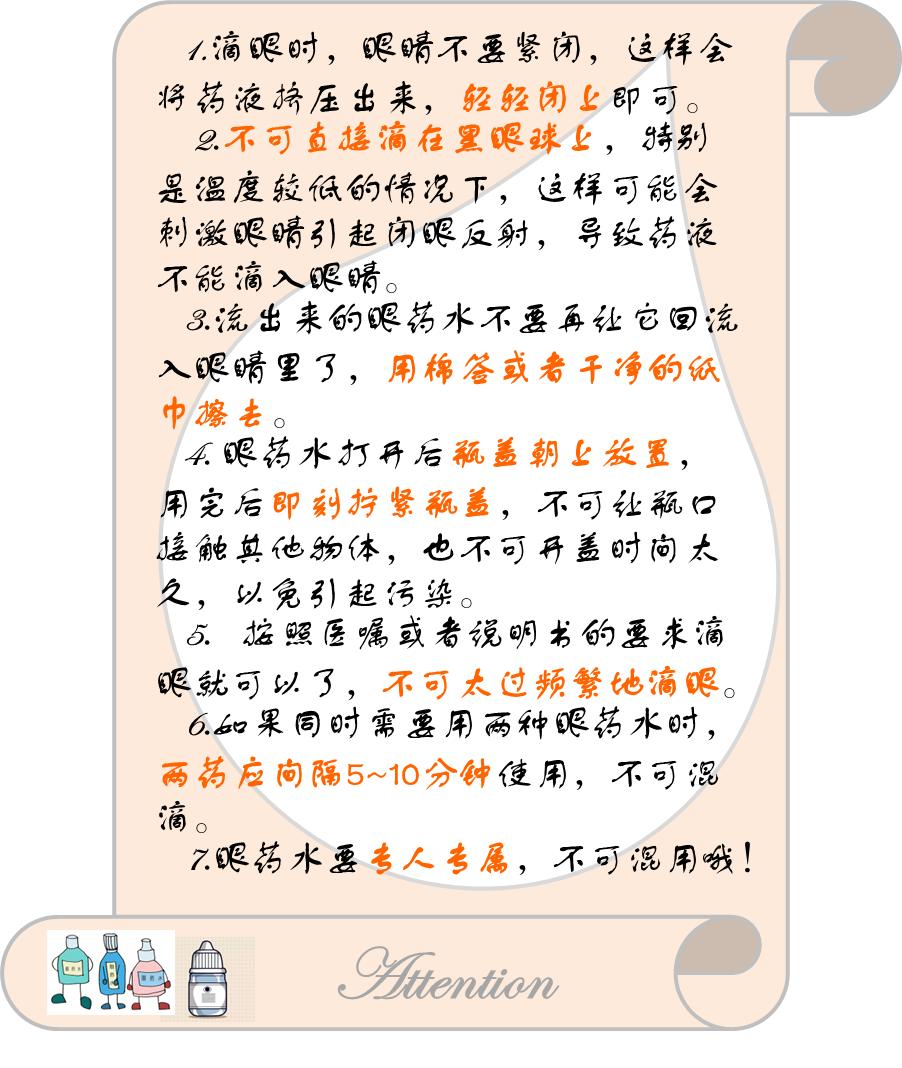 1.滴眼时，眼睛不要紧闭，这样会
将药液挤压出来，轻轻闭上即可。
2.不可直接滴在黑眼球上，特别
是温度较低的情况下，这样可能会
刺激眼睛引起闭眼反射，导致药液
不能滴入眼睛。
3.流出来的眼药水不要再让它回流
入眼睛里了，用棉签或者干净的纸
巾擦去。
4.眼药水打开后瓶盖朝上放置，
用完后即刻拧紧瓶盖，不可让瓶口
接触其他物体，也不可开盖时间太
久，以免引起污染。
5. 按照医嘱或者说明书的要求滴
眼就可以了，不可太过频繁地滴眼。
6.如果同时需要用两种眼药水时，
两药应间隔5~10分钟使用，不可混
滴。
7.眼药水要专人专属，不可混用哦！
Attention